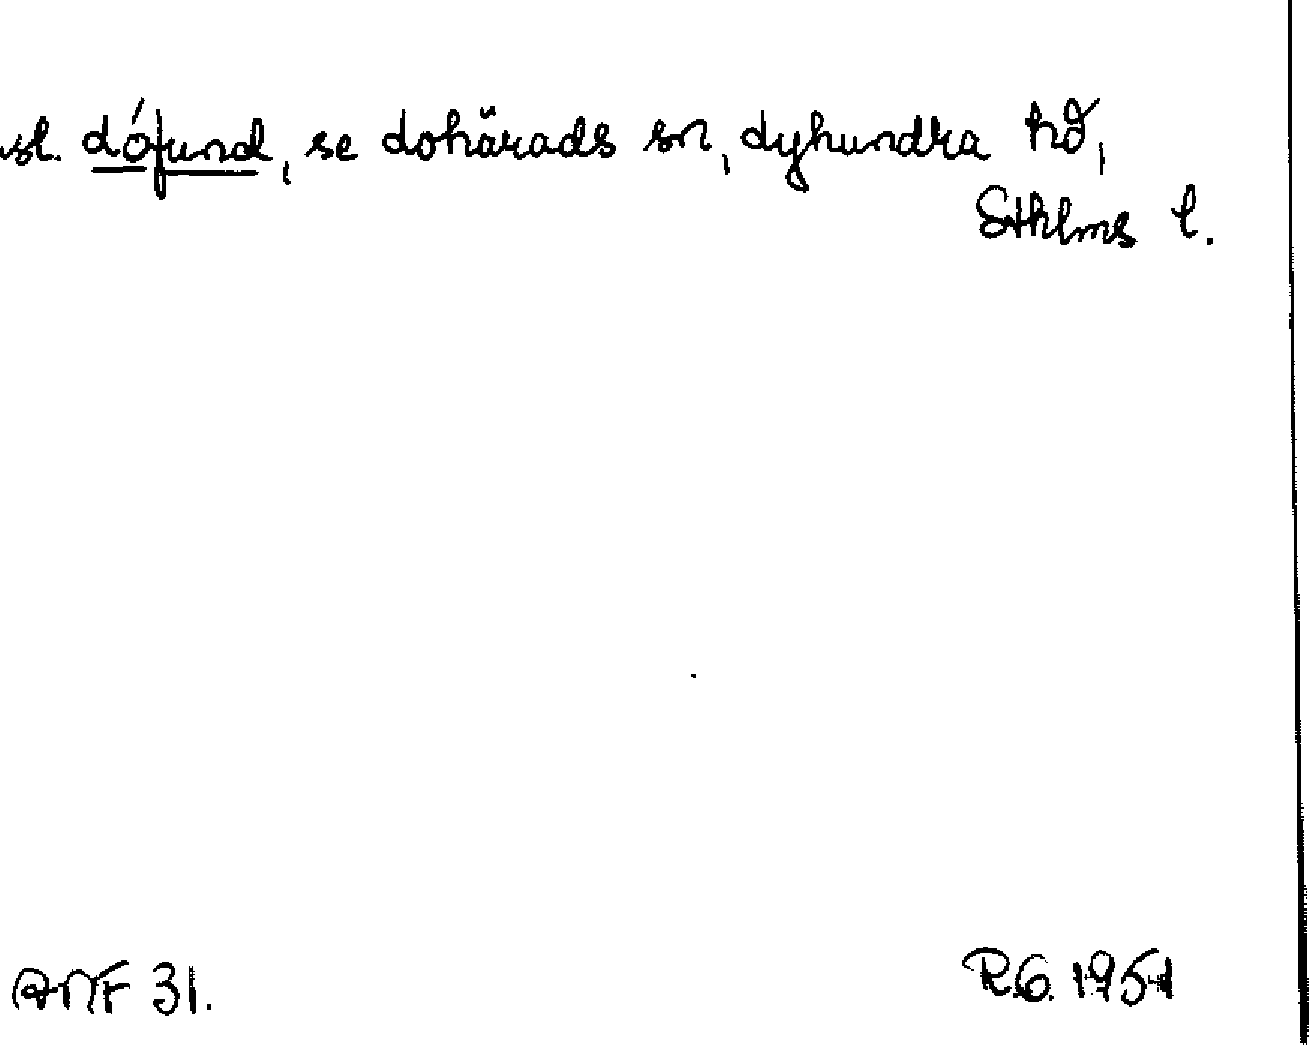 isl. dófund, se dohärads sn, dyhundra hd,
Sthlms l.
ANF 31.
R.G. 1951